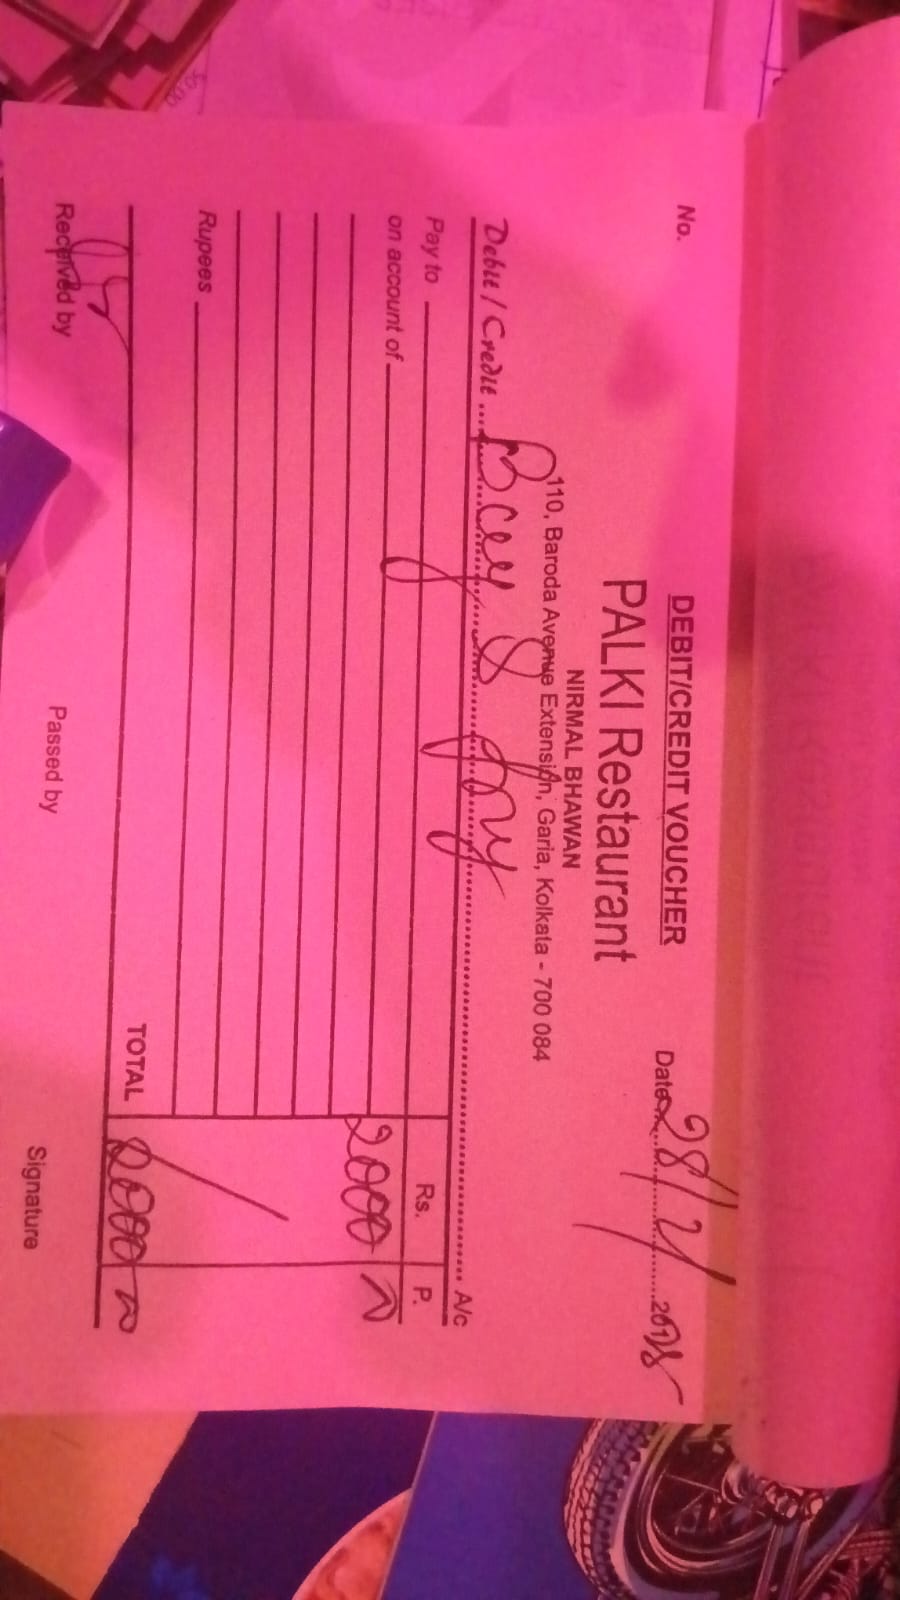 No.
DEBIT/CREDIT VOUCHER
Date 28/2/
PALKI Restaurant
NIRMAL BHAWAN
110, Baroda Avenue Extension, Garia, Kolkata - 700 084
Debit / Credit A/c
Pay to Rs. P.
on account of
2000
Rupees
TOTAL 2000
Received by Passed by Signature